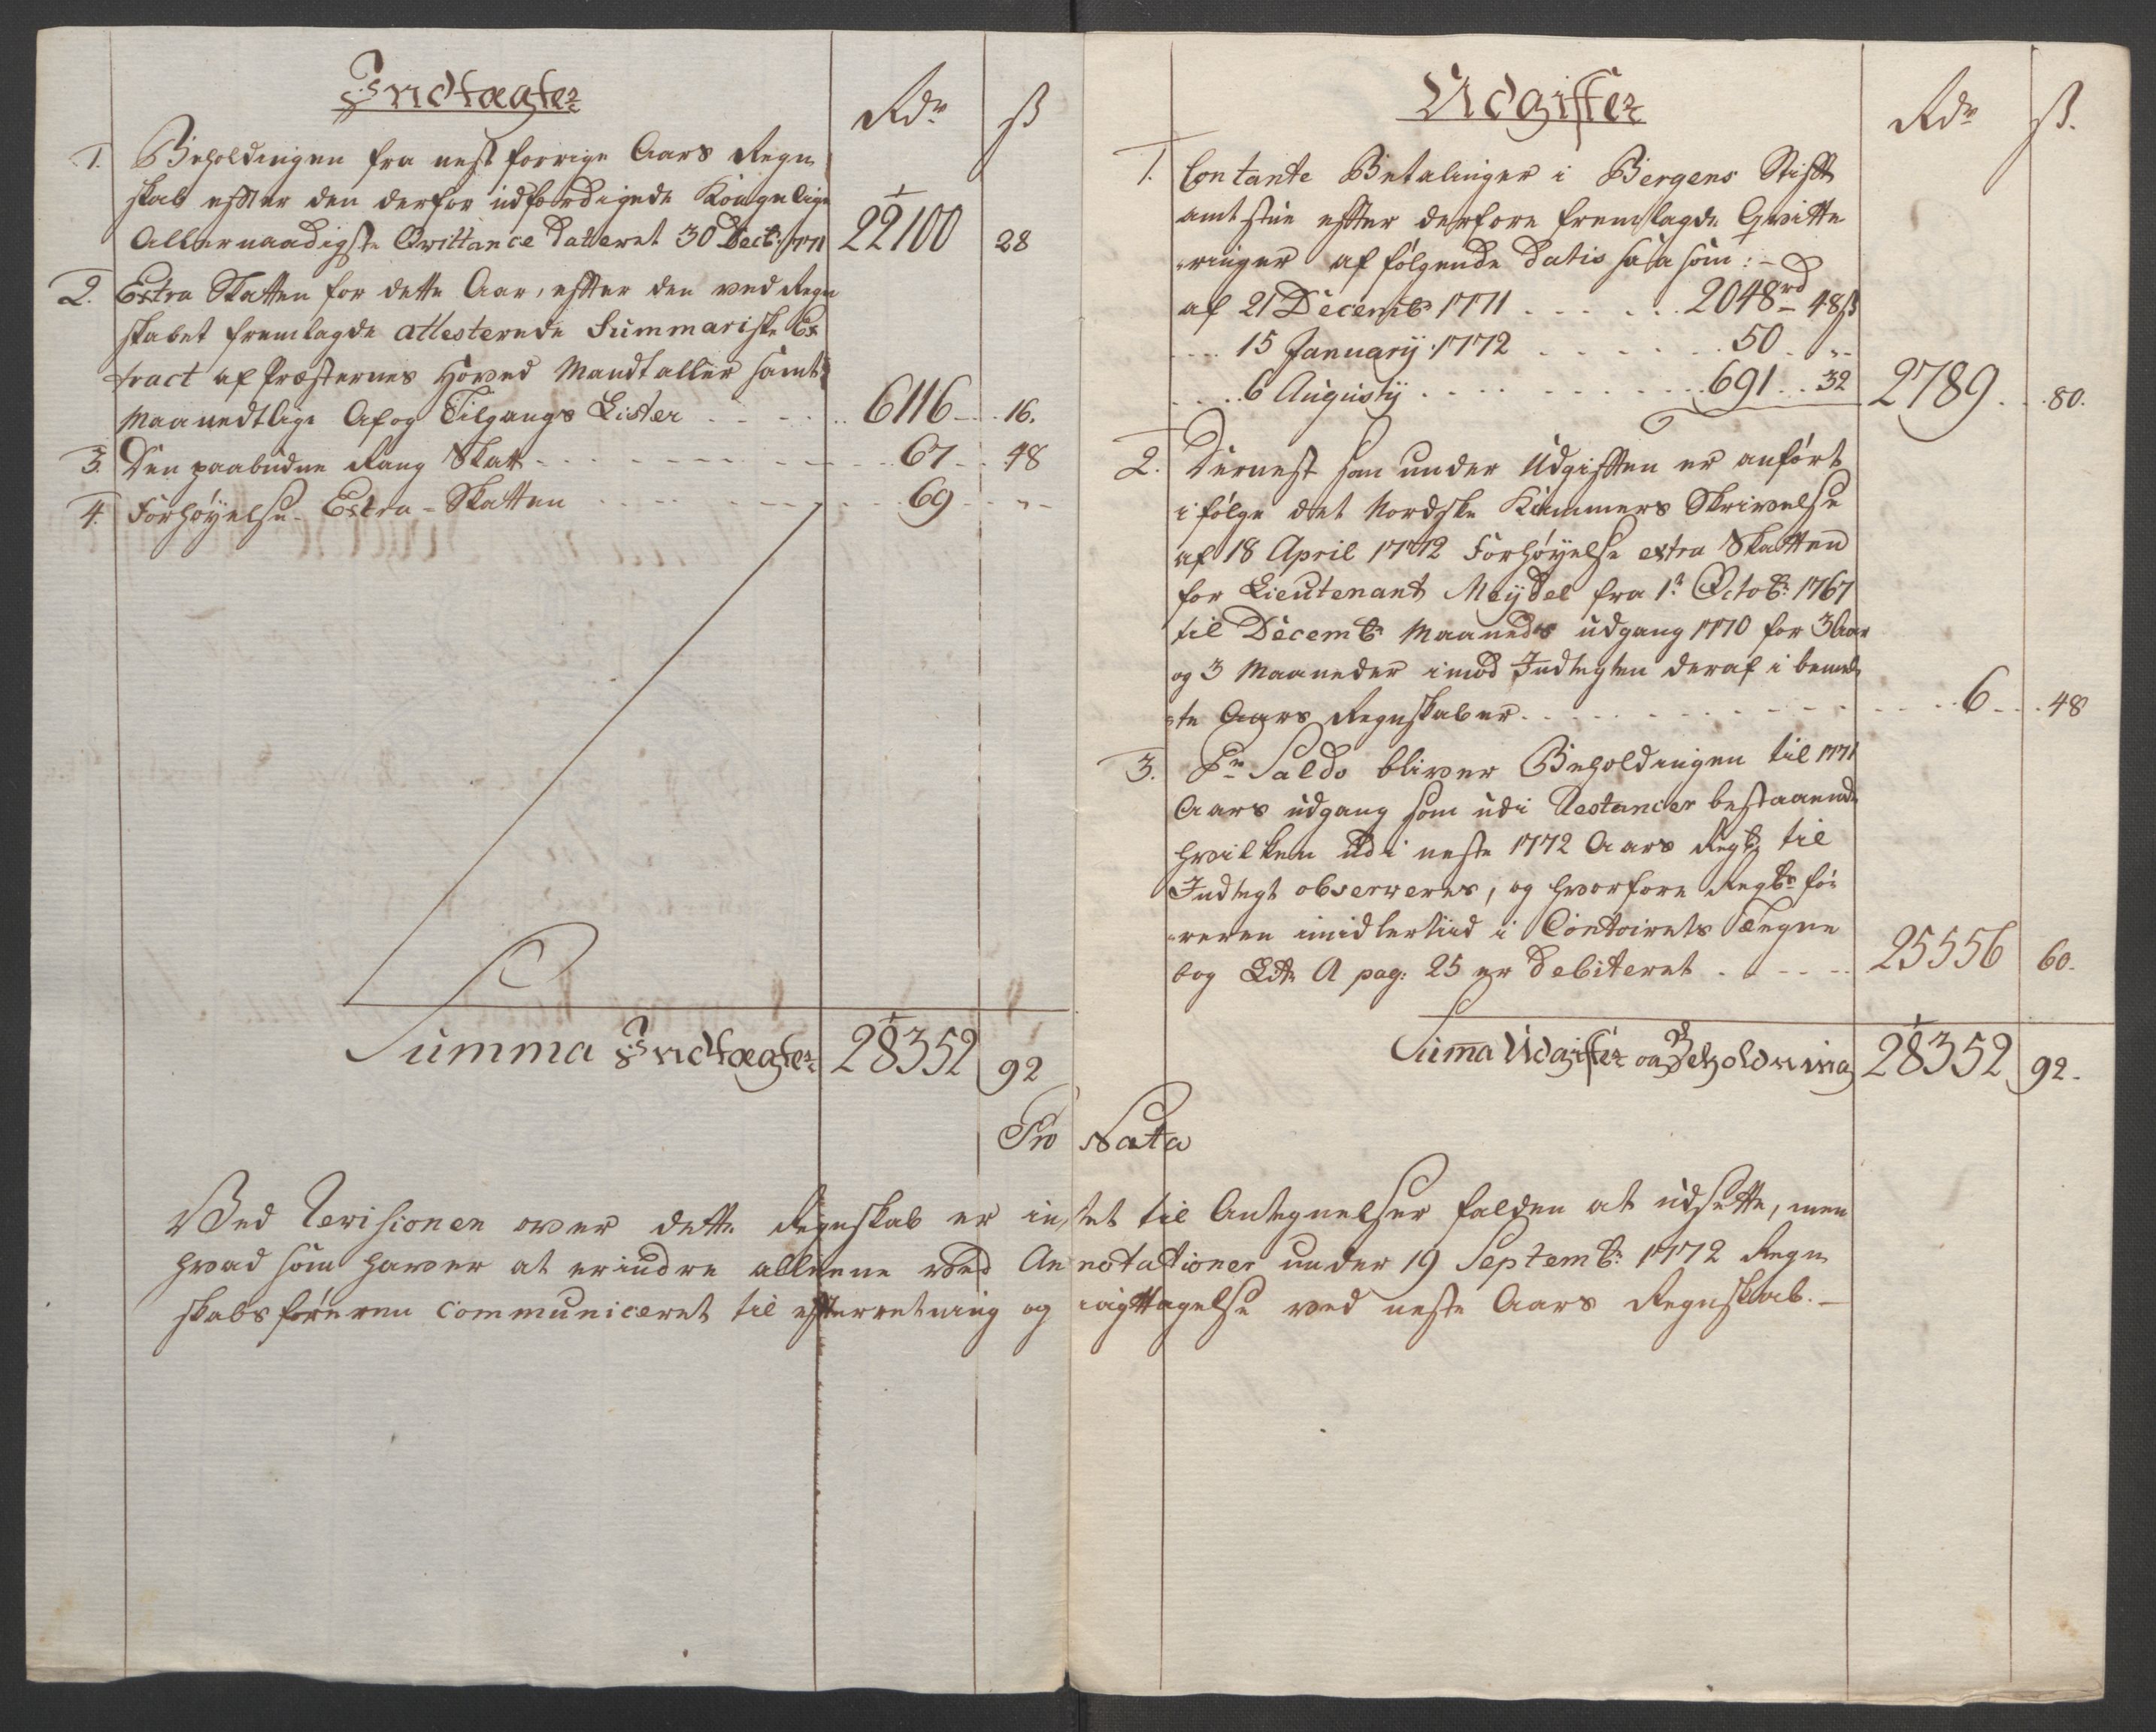 Indtægter
Rdr ß
1. Beholdingen fra nest forrige Aars Regn
skab efter den derfor udfærdigede Kongelige
Allernaadigste Qvittance dateret 30 Decbr: 1771 22100 28
2. Extra Skatten for dette Aar, efter den ved Regn
skabet fremlagde attesterede Summariske Ex
tract af Præsternes Hoved Mandtaller samt
Maanedtlige Af og Tilgangs Lister 6116 16.
3. Den paabudne Rang Skatt 67 48
4. Forhøyelse Extra-Skatten 69 "
Summa Indtægter 28352 92
Udgifter
Rdr ß.
1. Contante Betalinger i Bergens Stifft
amtstue effter derfore fremlagde Qvitte
ringer af følgende Datis saasom:
af 21 Decemb: 1771 2048 rd 48 ß
15 January 1772 50 "
6 Augusty 691 32 2789 80.
2. Dernest som under Udgifften er anført
i følge det Nordske Kammers Skrivelse
af 18 April 1772 Forhøyelse extra Skatten
for Lieutenant Meydel fra 1r Octob: 1767
til Decemb: Maaneds udgang 1770 for 3 Aar
og 3 Maaneder imod Indtegten deraf i bemel
te Aars Regnskaber 6 48
3. Pr Saldo bliver Beholdingen til 1771
Aars udgang som udi Restancer bestaaende
hvilken udi neste 1772 Aars Regsk: til
Indtegt observeres, og hvorfore Regsk: fø
reren imidlertiid i Contoirets Tegne
bog Litr A pag: 25 er debiteret 25556 60.
Summa Udgifter og Beholdning 28352 92.
Pro Nota
Ved Revisionen over dette Regnskab er intet til Antegnelser falden at udsette, men
hvad som haver at erindre alleene ved Annotationer under 19 Septemb: 1772 Regn
skabsføreren communiceret til efterretning og iagttagelse ved neste Aars Regnskab.